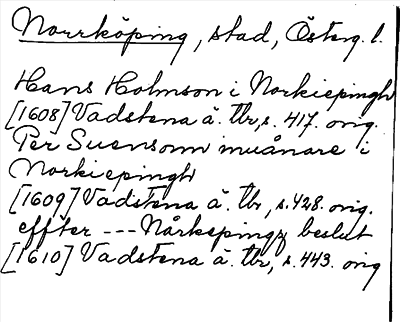 Norrköping, stad, Österg. l.
Hans Holmson i Norkiepingh
[1608] Vadstena ä. tbr, s. 417. orig.
Per Suensonn inuånare i
Norkiepingh
[1609] Vadstena ä. tbr, s. 428. orig.
effter --- Nårkepingz beslut
[1610] Vadstena ä. tbr, s. 443. orig